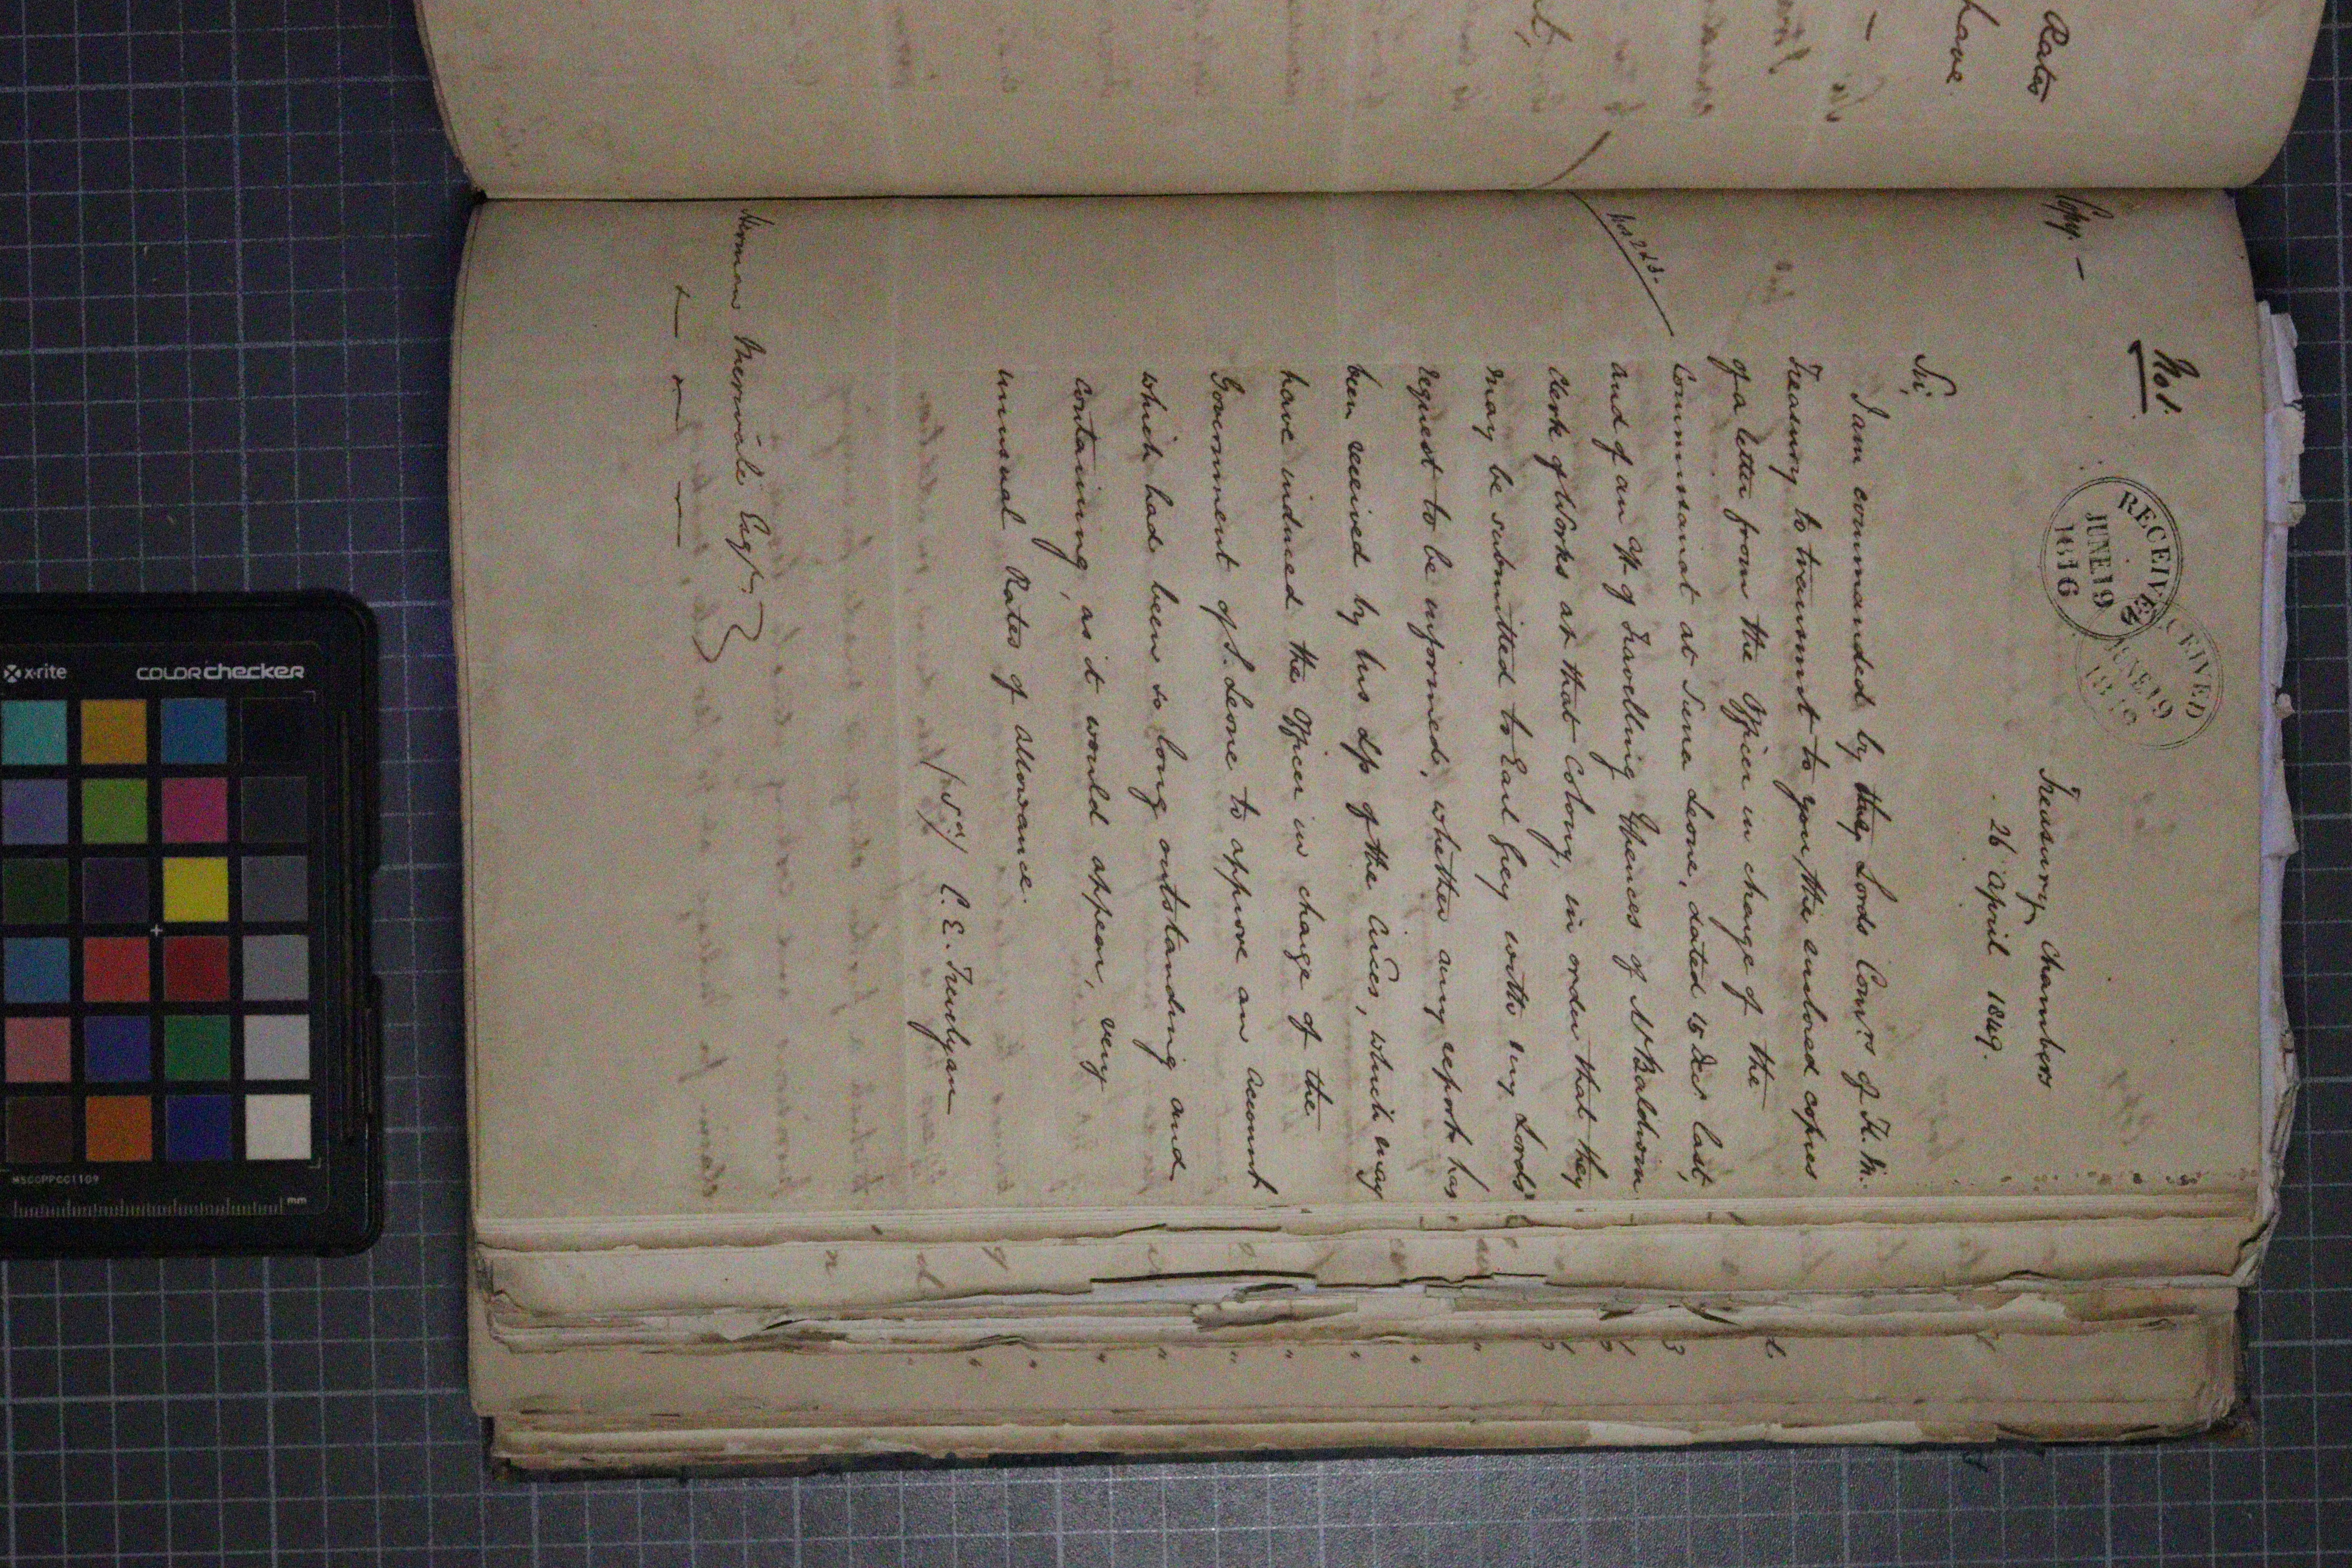 Rates
have
Copy. —
No 1.
RECEIVED
JUNE 19
RECEIVED
JUNE 19
Treasury Chambers
26 April 1849.
Sir,
I am commanded by the Lords Comrs of H. M.
Treasury to transmit to you the enclosed copies
of a letter from the Officer in charge of the
Commissariat at Sierra Leone, dated 15 Decr last,
and of an of Travelling Expences of Mr Baldwin
Clerk of Works at that Colony, in order that they
may be submitted to Earl Grey with my Lords'
request to be informed, whether any report has
been received by his Lp of the Circes, which may
have induced the Officer in charge of the
Government of S. Leone to approve an account
which had been so long outstanding and
containing, as it would appear, very
unusual Rates of allowance.
(sd) C. E. Trevelyan
Herman Merivale Esqr.
x·rite
colorchecker
MSCCPPCC1109
mm